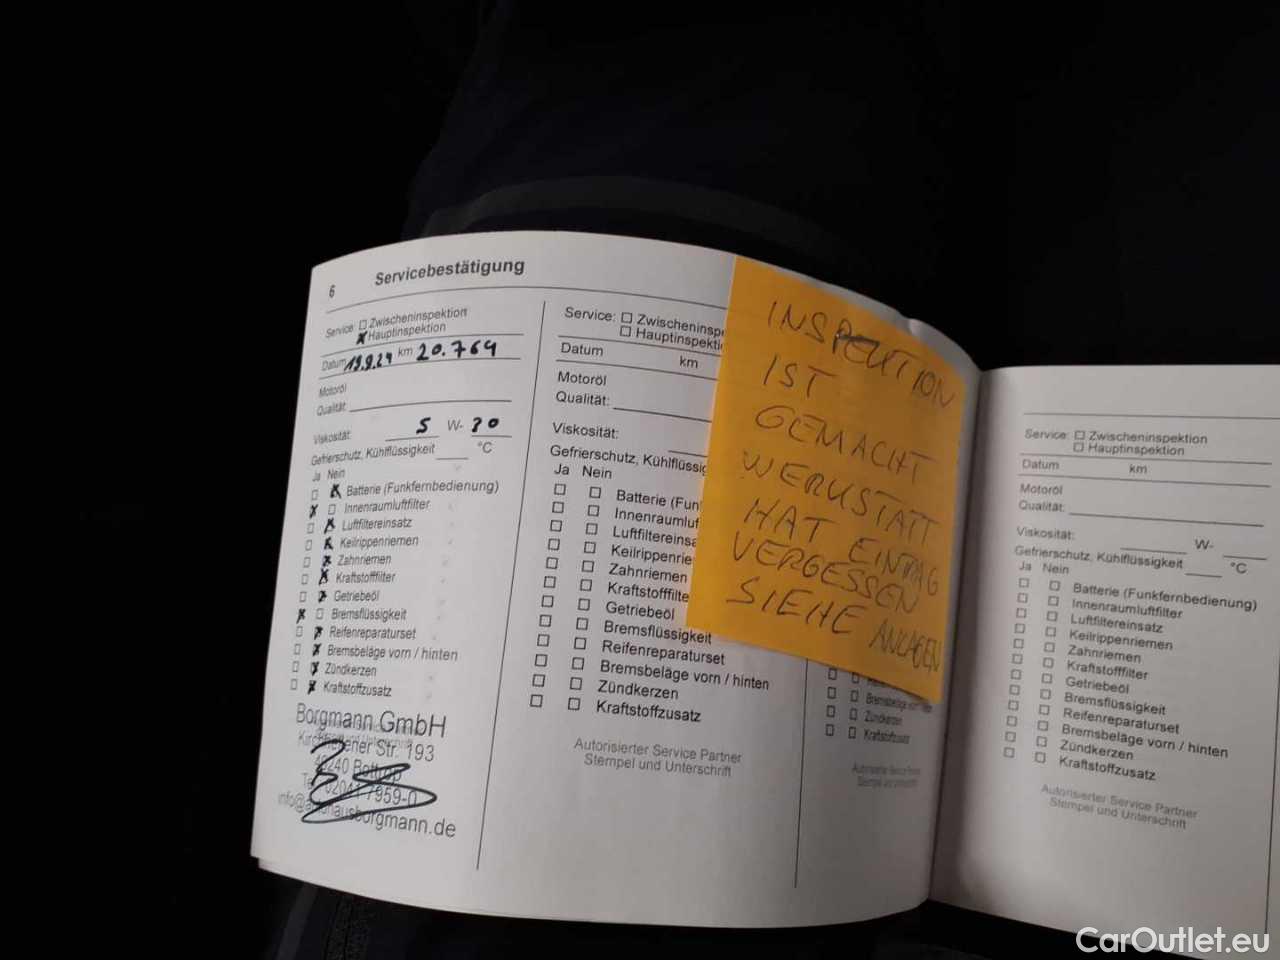 6 Servicebestätigung
Service: Zwischeninspektion
Hauptinspektion
Datum 19.9.24 km 20.764
Motoröl
Qualität:
Viskosität: 5 W-
Gefrierschutz, Kühlflüssigkeit °C
Ja Nein
Batterie (Funkfernbedienung)
Innenraumluftfilter
Luftfiltereinsatz
Keilrippenriemen
Zahnriemen
Kraftstofffilter
Getriebeöl
Bremsflüssigkeit
Reifenreparaturset
Bremsbeläge vorn / hinten
Zündkerzen
Kraftstoffzusatz
Borgmann GmbH
Str. 193
46240 Bottrop
02041-7959-0
info@autohausborgmann.de
Service: Zwischeninspe
Hauptinspekti
Datum km
Motoröl
Qualität:
Viskosität:
Gefrierschutz, Kühlflüssig
Ja Nein
Batterie (Fun
Innenraumluf
Luftfiltereinsa
Keilrippenrie
Zahnriemen
Kraftstofffilte
Getriebeöl
Bremsflüssigkeit
Reifenreparaturset
Bremsbeläge vorn / hinten
Zündkerzen
Kraftstoffzusatz
Autorisierter Service Partner
Stempel und Unterschrift
INSPEKTION
IST
GEMACHT
WERKSTATT
HAT EINTRAG
VERGESSEN
SIEHE ANLAGEN
Bremsbeläge vorn
Zündkerzen
Kraftstoffzusatz
Autorisierter Service Partner
Stempel und Unterschrift
Service: Zwischeninspektion
Hauptinspektion
Datum km
Motoröl
Qualität:
Viskosität: W-
Gefrierschutz, Kühlflüssigkeit °C
Ja Nein
Batterie (Funkfernbedienung)
Innenraumluftfilter
Luftfiltereinsatz
Keilrippenriemen
Zahnriemen
Kraftstofffilter
Getriebeöl
Bremsflüssigkeit
Reifenreparaturset
Bremsbeläge vorn / hinten
Zündkerzen
Kraftstoffzusatz
Autorisierter Service Partner
Stempel und Unterschrift
CarOutlet.eu